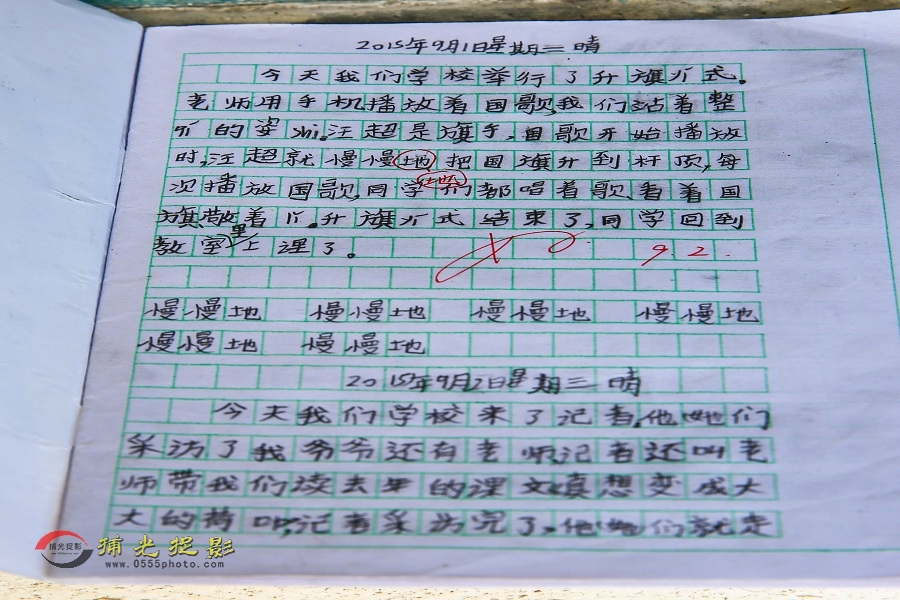 2015年9月1日星期二 晴
今天我们学校举行了升旗仪式。
老师用手机播放着国歌,我们站着整
齐的姿shi。汪超是旗手,国歌开始播放
时,汪超就慢慢地把国旗升到杆顶,每
次播放国歌,同学们都唱着歌,看着国
旗敬着礼。升旗仪式结束了,同学回到
教室里上课了。
92.
慢慢地 慢慢地 慢慢地 慢慢地
慢慢地 慢慢地
2015年9月2日星期三 晴
今天我们学校来了记者,他她们
采访了我爷爷还有老师,记者还叫老
师带我们读去年的课文真想变成大
大的荷叶,记者采访完了,他她们就走
捕光捉影
捕光捉影
www.0555photo.com